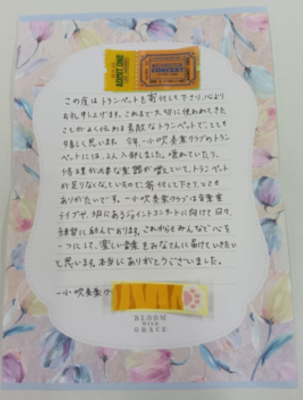 ADMIT ONE
CONCERT
この度はトランペットを寄付して下さり、心より
お礼申し上げます。これまで大切に使われてきた
ことがよく伝わる素敵なトランペットで、とても
嬉しく思います。今年、一小吹奏楽クラブのトラン
ペットには、2人入部しました。壊れていたり、
修理が必要な楽器が増えていて、トランペット
が足りなくなっていたので、寄付して下さり、とても
ありがたいです。一小吹奏楽クラブは音楽室
ライブや、3月にあるジョイントコンサートに向けて日々、
練習に励んでおります。これからもみんなで心を
一つにして、楽しい音楽をみなさんに届けていきたい
と思います。本当にありがとうございました。
一小吹奏楽ク
BLOOM
WITH
GRACE